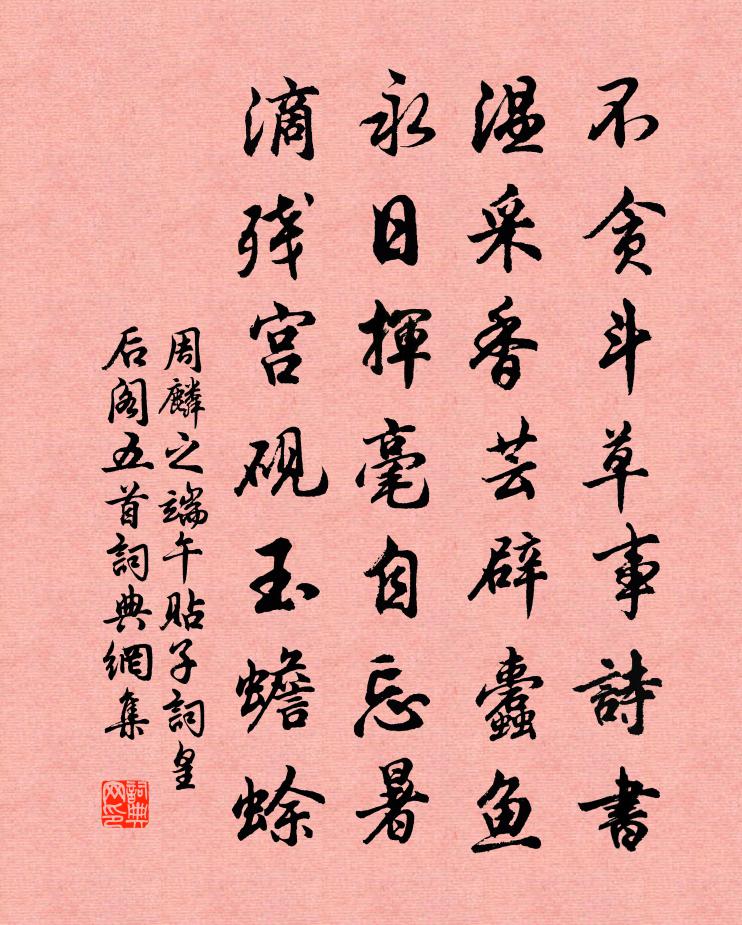 不贪斗草事詩書
温采香芸辟蠹鱼
永日揮毫自忘暑
滴残宫砚玉蟾蜍
周麟之端午贴子詞皇
后阁五首詞典網集
詞典
网印